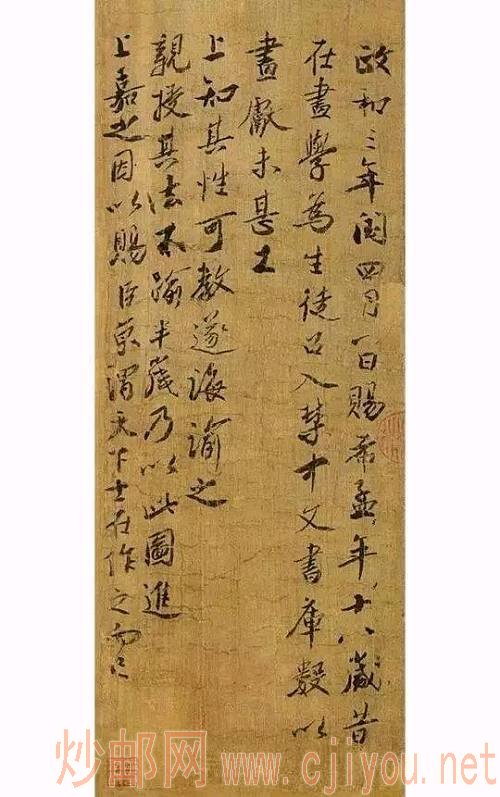 政和三年閏四月一日賜希孟年十八歲昔
在畫學為生徒召入禁中文書庫數以
畫獻未甚工
上知其性可教遂誨諭之
親授其法不踰半歲乃以此圖進
上嘉之因以賜臣京謂天下士在作之而已
炒邮网 www.cjiyou.net